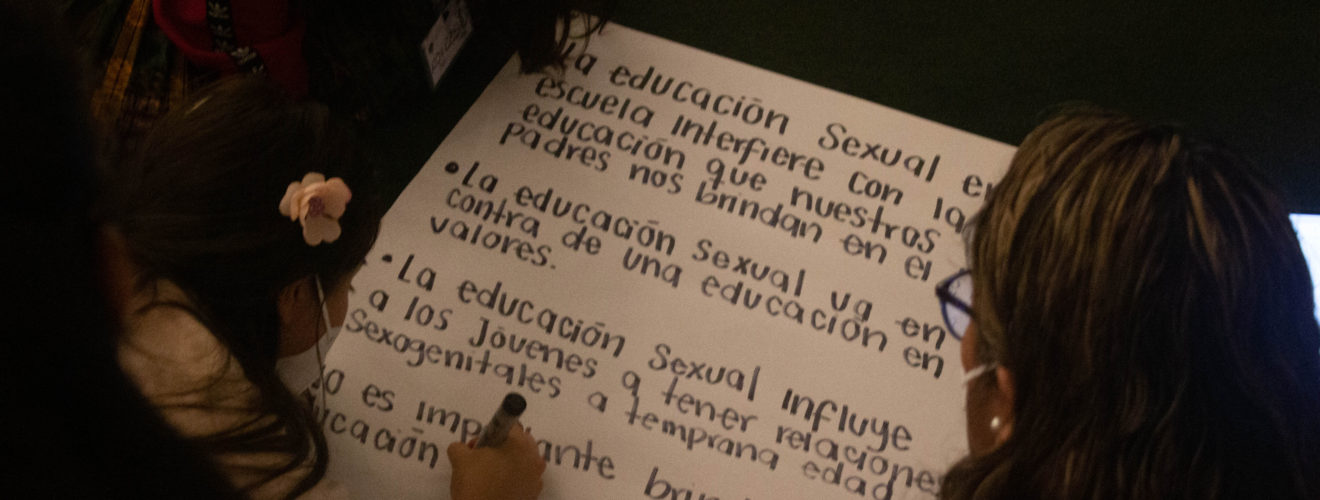 La educación Sexual en
escuela Interfiere con la
educación que nuestros
padres nos brindan en el
•La educación sexual va en
contra de una educación en
valores.
•La educación Sexual Influye
a los Jóvenes a tener relaciones
sexogenitales a temprana edad
es